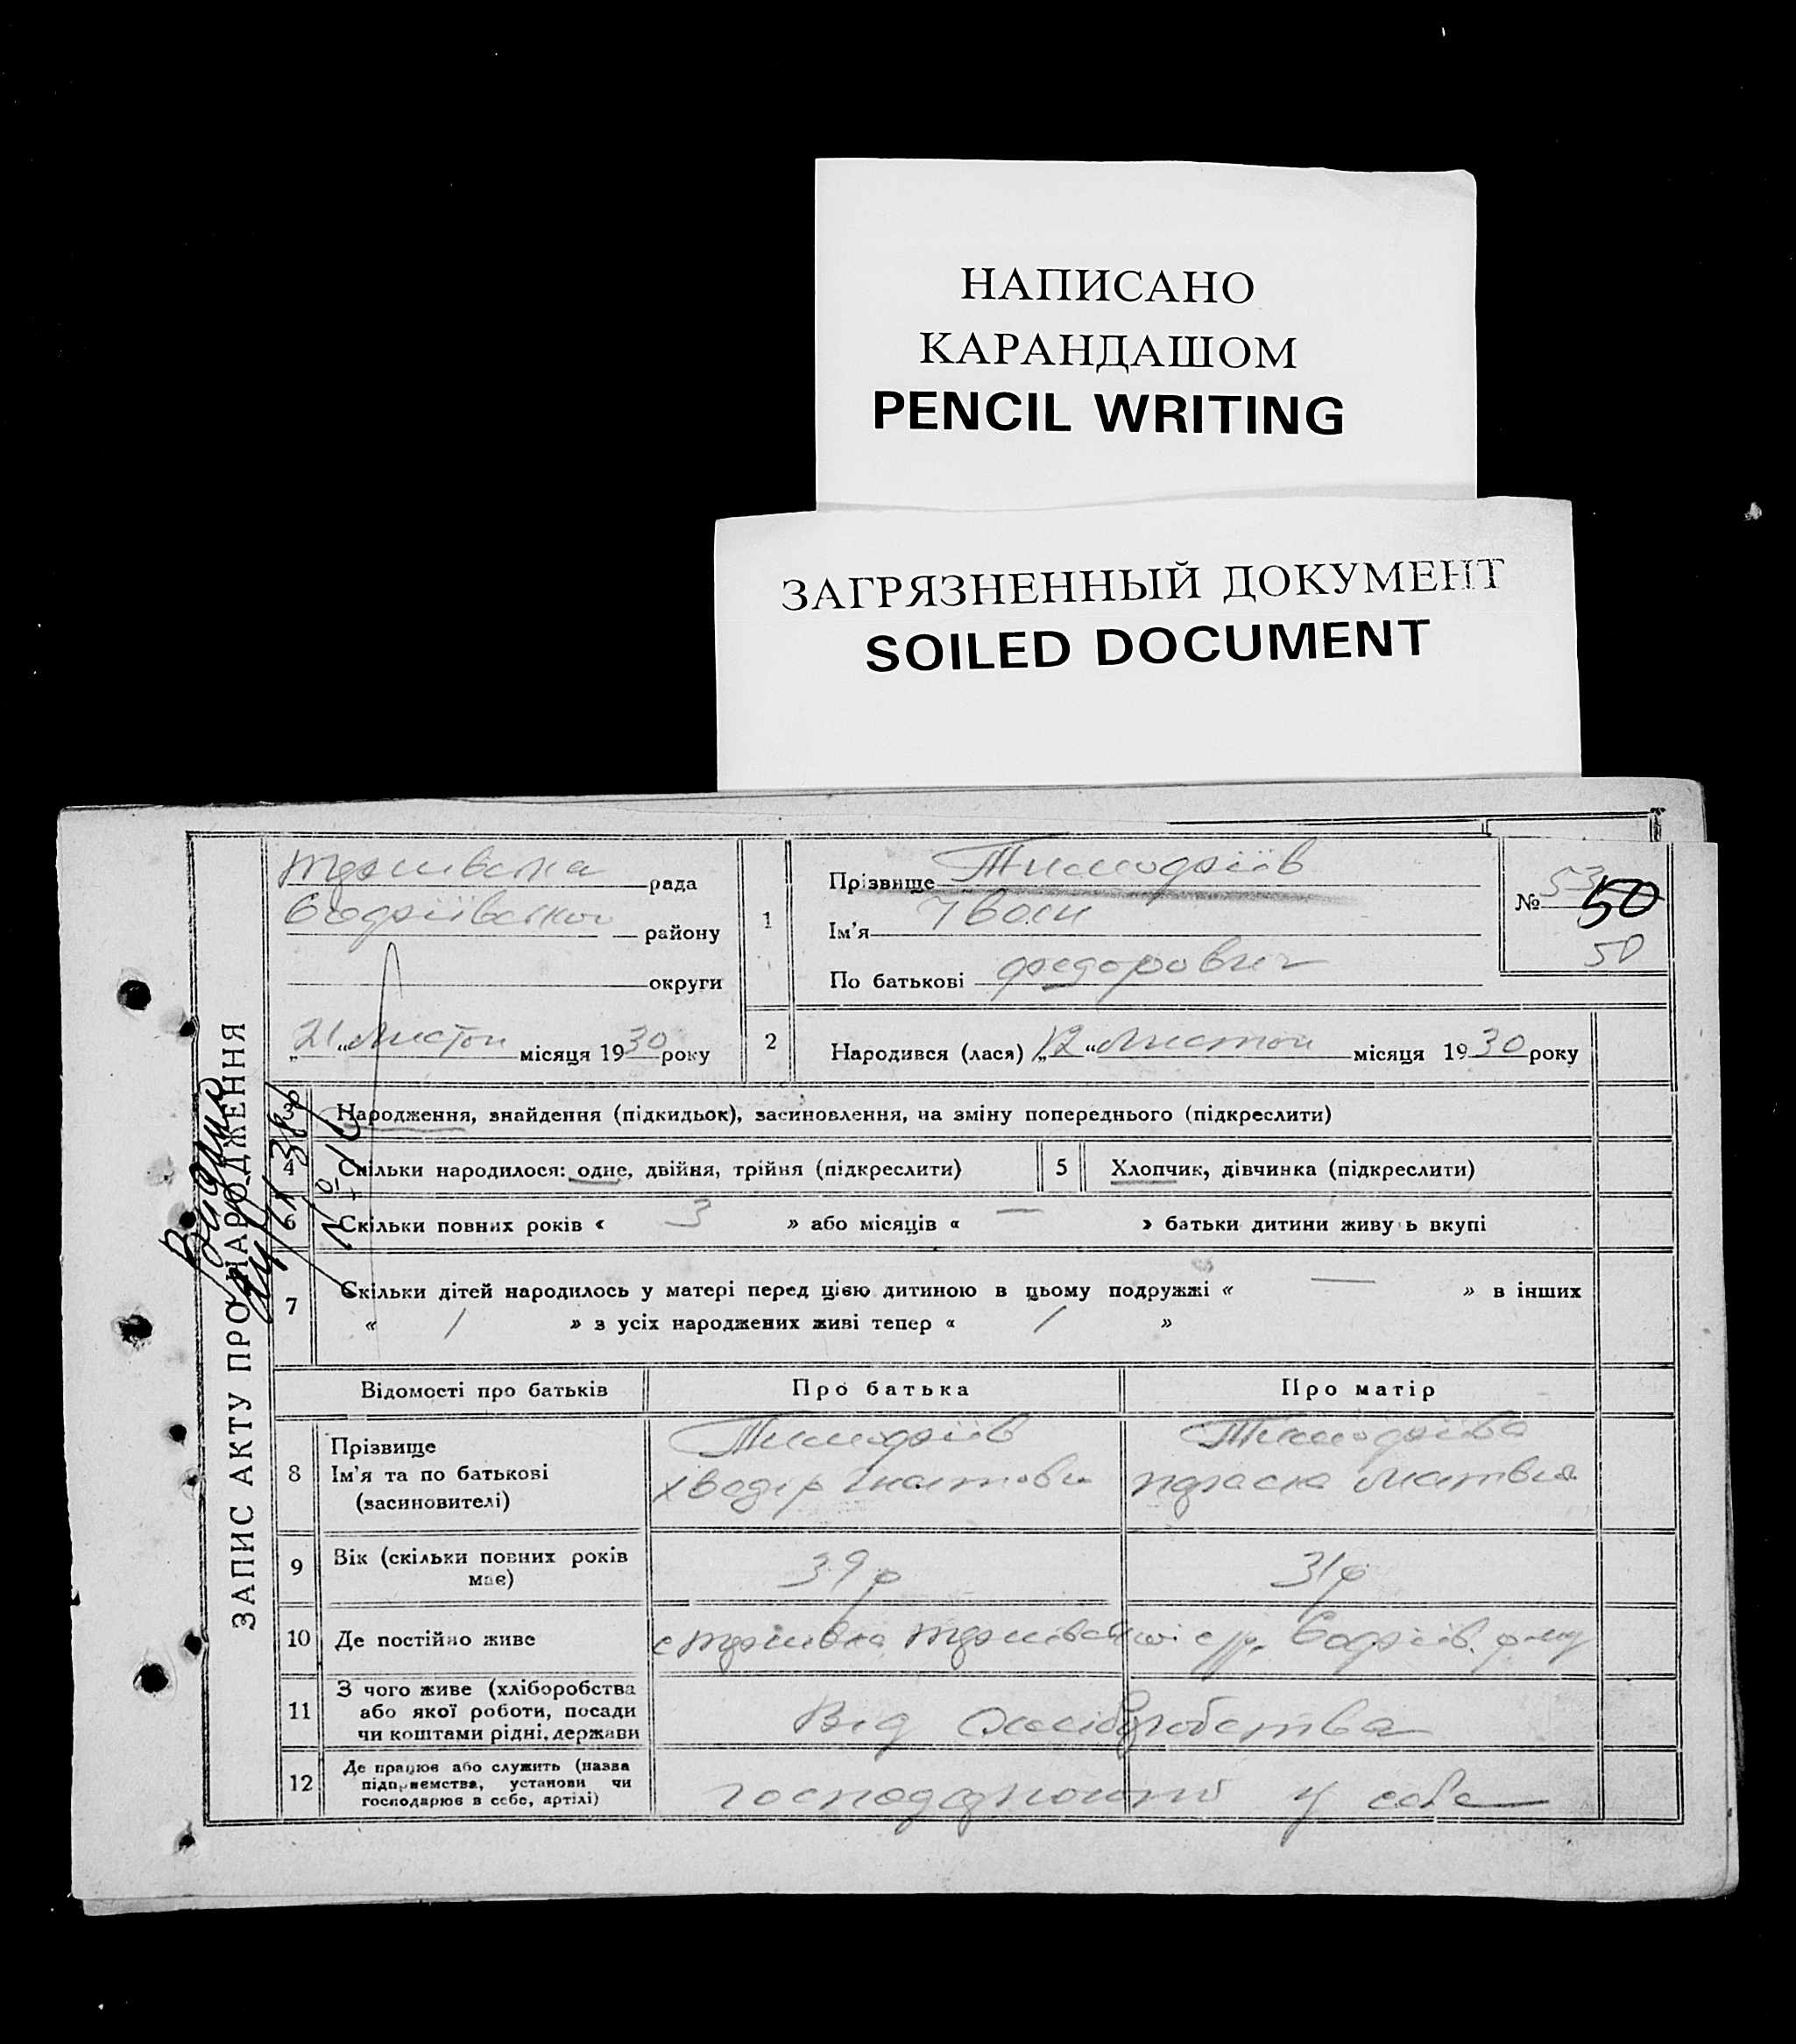 НАПИСАНО
КАРАНДАШОМ
PENCIL WRITING
ЗАГРЯЗНЕННЫЙ ДОКУМЕНТ
SOILED DOCUMENT
ЗАПИС АКТУ ПРО НАРОДЖЕННЯ
рада
району
округи
„21" Листоп місяця 1930 року
1
Прізвище Тимофіїв
Ім'я Іван
По батькові Федорович
№ 53 50
50
2
Народився (лася) „12" Листоп місяця 1930 року
Народження, знайдення (підкидьок), засиновлення, на зміну попереднього (підкреслити)
4 Скільки народилося: одне, двійня, трійня (підкреслити)
5 Хлопчик, дівчинка (підкреслити)
6 Скільки повних років « 3 » або місяців « — » батьки дитини живуть вкупі
7 Скільки дітей народилось у матері перед цією дитиною в цьому подружжі « — » в інших
« 1 » з усіх народжених живі тепер « 1 »
Відомості про батьків Про батька Про матір
8 Прізвище Тимофіїв Тимофіїва
Ім'я та по батькові Хведір
(засиновителі)
9 Вік (скільки повних років має) 39 р 31 р
10 Де постійно живе
11 З чого живе (хліборобства
або якої роботи, посади
чи коштами рідні, держави
Від хліборобства
12 Де працює або служить (назва
підприємства, установи чи
господарює в себе, артілі)
у себе